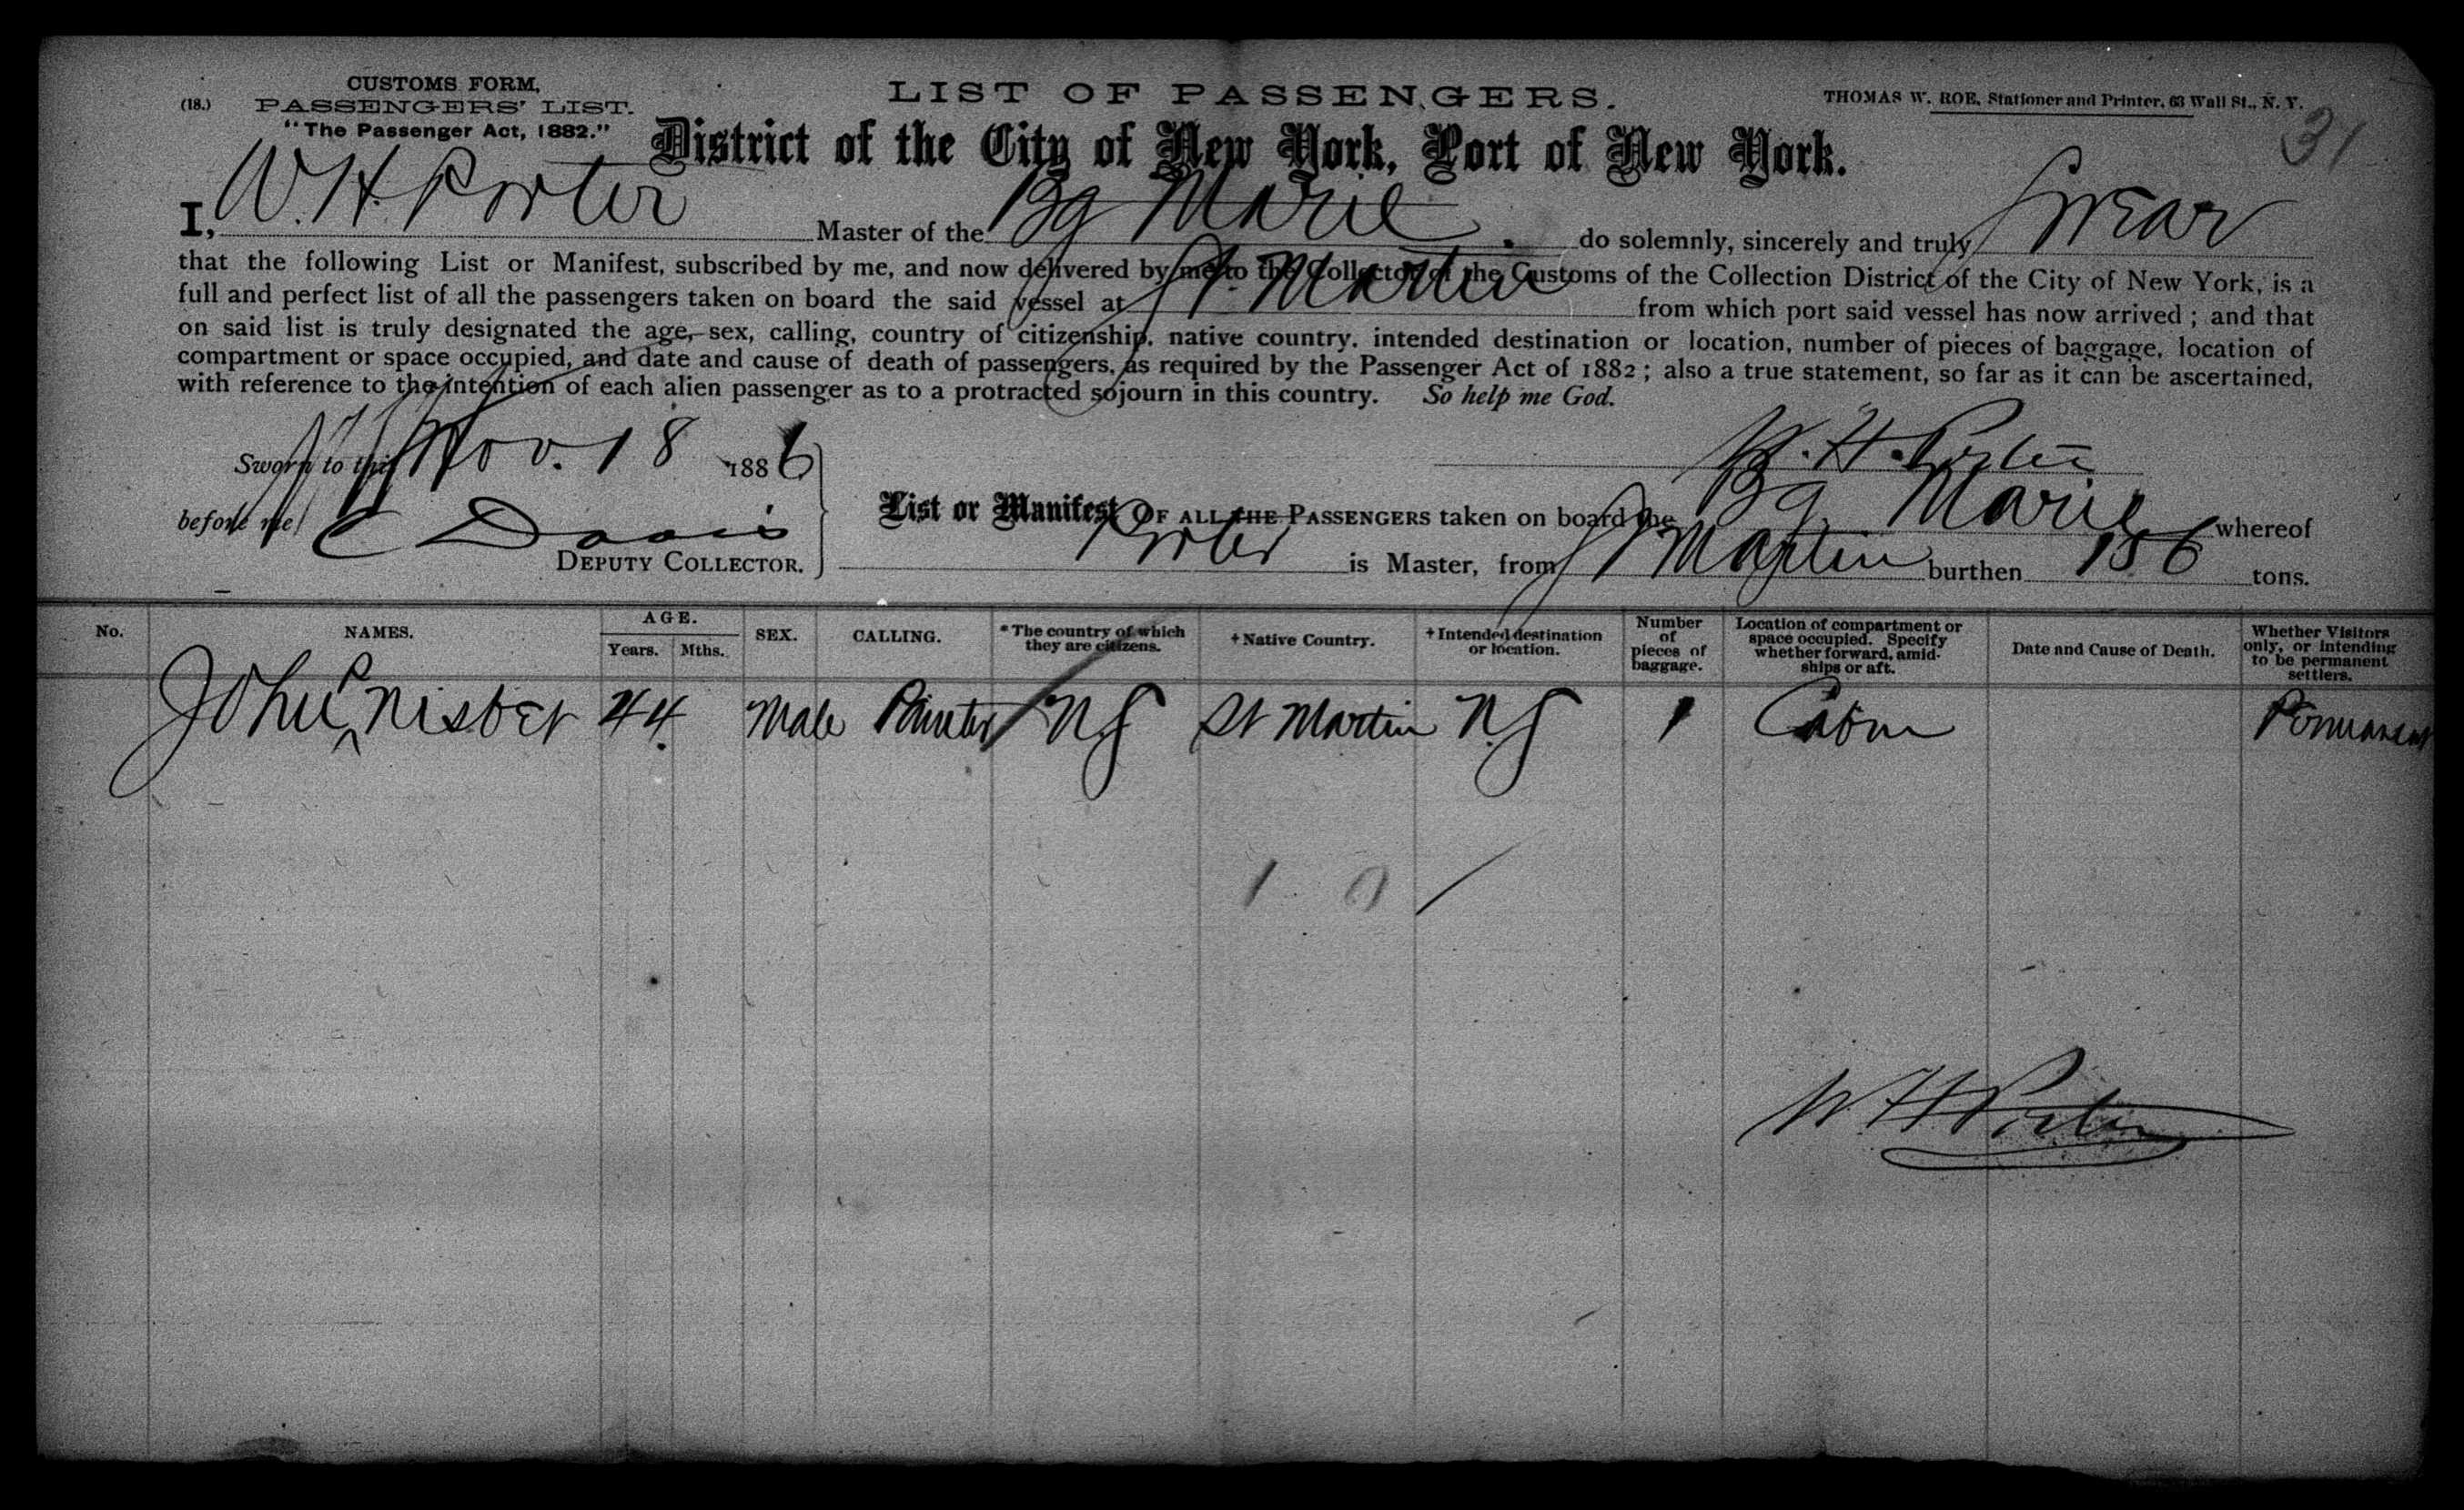 CUSTOMS FORM,
(18.) PASSENGERS' LIST.
"The Passenger Act, 1882."
LIST OF PASSENGERS.
THOMAS W. ROE, Stationer and Printer, 63 Wall St., N. Y.
31
District of the City of New York, Port of New York.
I, W. H. Porter Master of the Bg Marie do solemnly, sincerely and truly Swear
that the following List or Manifest, subscribed by me, and now delivered by me to the Collector of the Customs of the Collection District of the City of New York, is a
full and perfect list of all the passengers taken on board the said vessel at St. Martin from which port said vessel has now arrived; and that
on said list is truly designated the age, sex, calling, country of citizenship, native country, intended destination or location, number of pieces of baggage, location of
compartment or space occupied, and date and cause of death of passengers, as required by the Passenger Act of 1882; also a true statement, so far as it can be ascertained,
with reference to the intention of each alien passenger as to a protracted sojourn in this country. So help me God.
Sworn to this Nov. 18 1886
W. H. Porter
before me C Davis
DEPUTY COLLECTOR.
List or Manifest OF ALL THE PASSENGERS taken on board the Bg Marie whereof
Porter is Master, from St Martin burthen 186 tons.
No. NAMES. AGE. Years. Mths. SEX. CALLING. *The country of which they are citizens. +Native Country. +Intended destination or location. Number of pieces of baggage. Location of compartment or space occupied. Specify whether forward, amidships or aft. Date and Cause of Death. Whether Visitors only, or intending to be permanent settlers.
John P Nisbet 44 Male Painter N.J St Martin N.J 1 Cabin Permanent
1 0
W. H. Porter